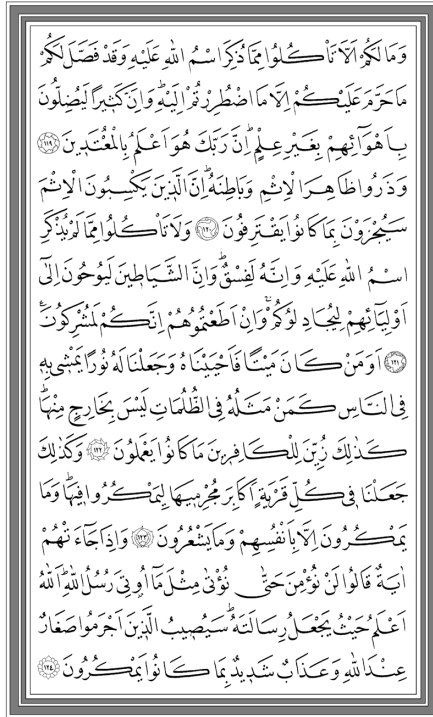 وَمَا لَكُمْ اَلَّا تَأْكُلُوا مِمَّا ذُكِرَ اسْمُ اللّٰهِ عَلَيْهِ وَقَدْ فَصَّلَ لَكُمْ
مَا حَرَّمَ عَلَيْكُمْ اِلَّا مَا اضْطُرِرْتُمْ اِلَيْهِۜ وَاِنَّ كَث۪يرًا لَيُضِلُّونَ
بِاَهْوَٓائِهِمْ بِغَيْرِ عِلْمٍۜ اِنَّ رَبَّكَ هُوَ اَعْلَمُ بِالْمُعْتَد۪ينَ ﴿١١٩﴾
وَذَرُوا ظَاهِرَ الْاِثْمِ وَبَاطِنَهُۜ اِنَّ الَّذ۪ينَ يَكْسِبُونَ الْاِثْمَ
سَيُجْزَوْنَ بِمَا كَانُوا يَقْتَرِفُونَ ﴿١٢٠﴾ وَلَا تَأْكُلُوا مِمَّا لَمْ يُذْكَرِ
اسْمُ اللّٰهِ عَلَيْهِ وَاِنَّهُ لَفِسْقٌۜ وَاِنَّ الشَّيَاط۪ينَ لَيُوحُونَ اِلٰٓى
اَوْلِيَٓائِهِمْ لِيُجَادِلُوكُمْۚ وَاِنْ اَطَعْتُمُوهُمْ اِنَّكُمْ لَمُشْرِكُونَ۟
﴿١٢١﴾ اَوَمَنْ كَانَ مَيْتًا فَاَحْيَيْنَاهُ وَجَعَلْنَا لَهُ نُورًا يَمْش۪ي بِه۪
فِي النَّاسِ كَمَنْ مَثَلُهُ فِي الظُّلُمَاتِ لَيْسَ بِخَارِجٍ مِنْهَاۜ
كَذٰلِكَ زُيِّنَ لِلْكَافِر۪ينَ مَا كَانُوا يَعْمَلُونَ ﴿١٢٢﴾ وَكَذٰلِكَ
جَعَلْنَا ف۪ي كُلِّ قَرْيَةٍ اَكَابِرَ مُجْرِم۪يهَا لِيَمْكُرُوا ف۪يهَاۜ وَمَا
يَمْكُرُونَ اِلَّا بِاَنْفُسِهِمْ وَمَا يَشْعُرُونَ ﴿١٢٣﴾ وَاِذَا جَٓاءَتْهُمْ
اٰيَةٌ قَالُوا لَنْ نُؤْمِنَ حَتّٰى نُؤْتٰى مِثْلَ مَٓا اُو۫تِيَ رُسُلُ اللّٰهِۜ اَللّٰهُ
اَعْلَمُ حَيْثُ يَجْعَلُ رِسَالَتَهُۜ سَيُص۪يبُ الَّذ۪ينَ اَجْرَمُوا صَغَارٌ
عِنْدَ اللّٰهِ وَعَذَابٌ شَد۪يدٌ بِمَا كَانُوا يَمْكُرُونَ ﴿١٢٤﴾